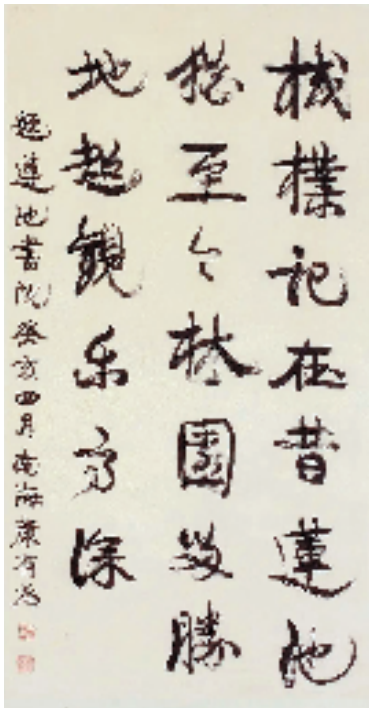 棫樸記在昔蓮池
猶至今林園最勝
地超觀樂方深
題蓮池書院癸亥四月南海康有為